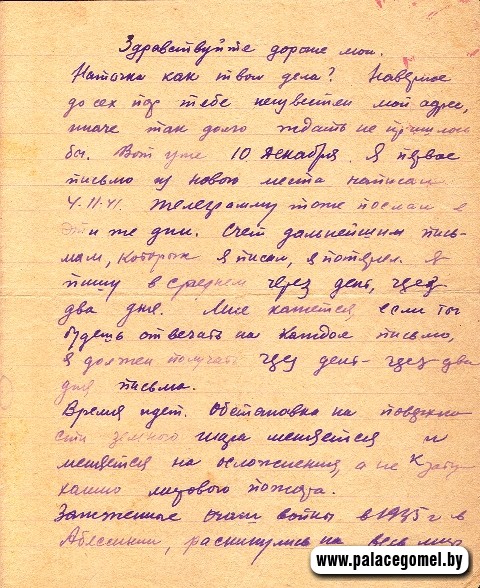 Здравствуйте дорогие мои.
Наточка как твои дела? Наверное
до сех пор тебе неизвестен мой адрес,
иначе так долго ждать не пришлось
бы. Вот уже 10 декабря. Я первое
письмо из нового места написал
4.11.41. Телеграмму тоже послал в
эти же дни. Счет дальнейшим пись-
мам, которые я писал, я потерял. Я
пишу в среднем через день, через
два дня. Мне кажется, если ты
будешь отвечать на каждое письмо,
я должен получать через день - через два
дня письма.
Время идет. Обстановка на поверхно
сти земного шара меняется и
меняется на осложнения, а не к зату
ханию мирового пожара.
Зажженные очаги войны в 1935 г в
Абессинии, раскинулись на весь мир
www.palacegomel.by